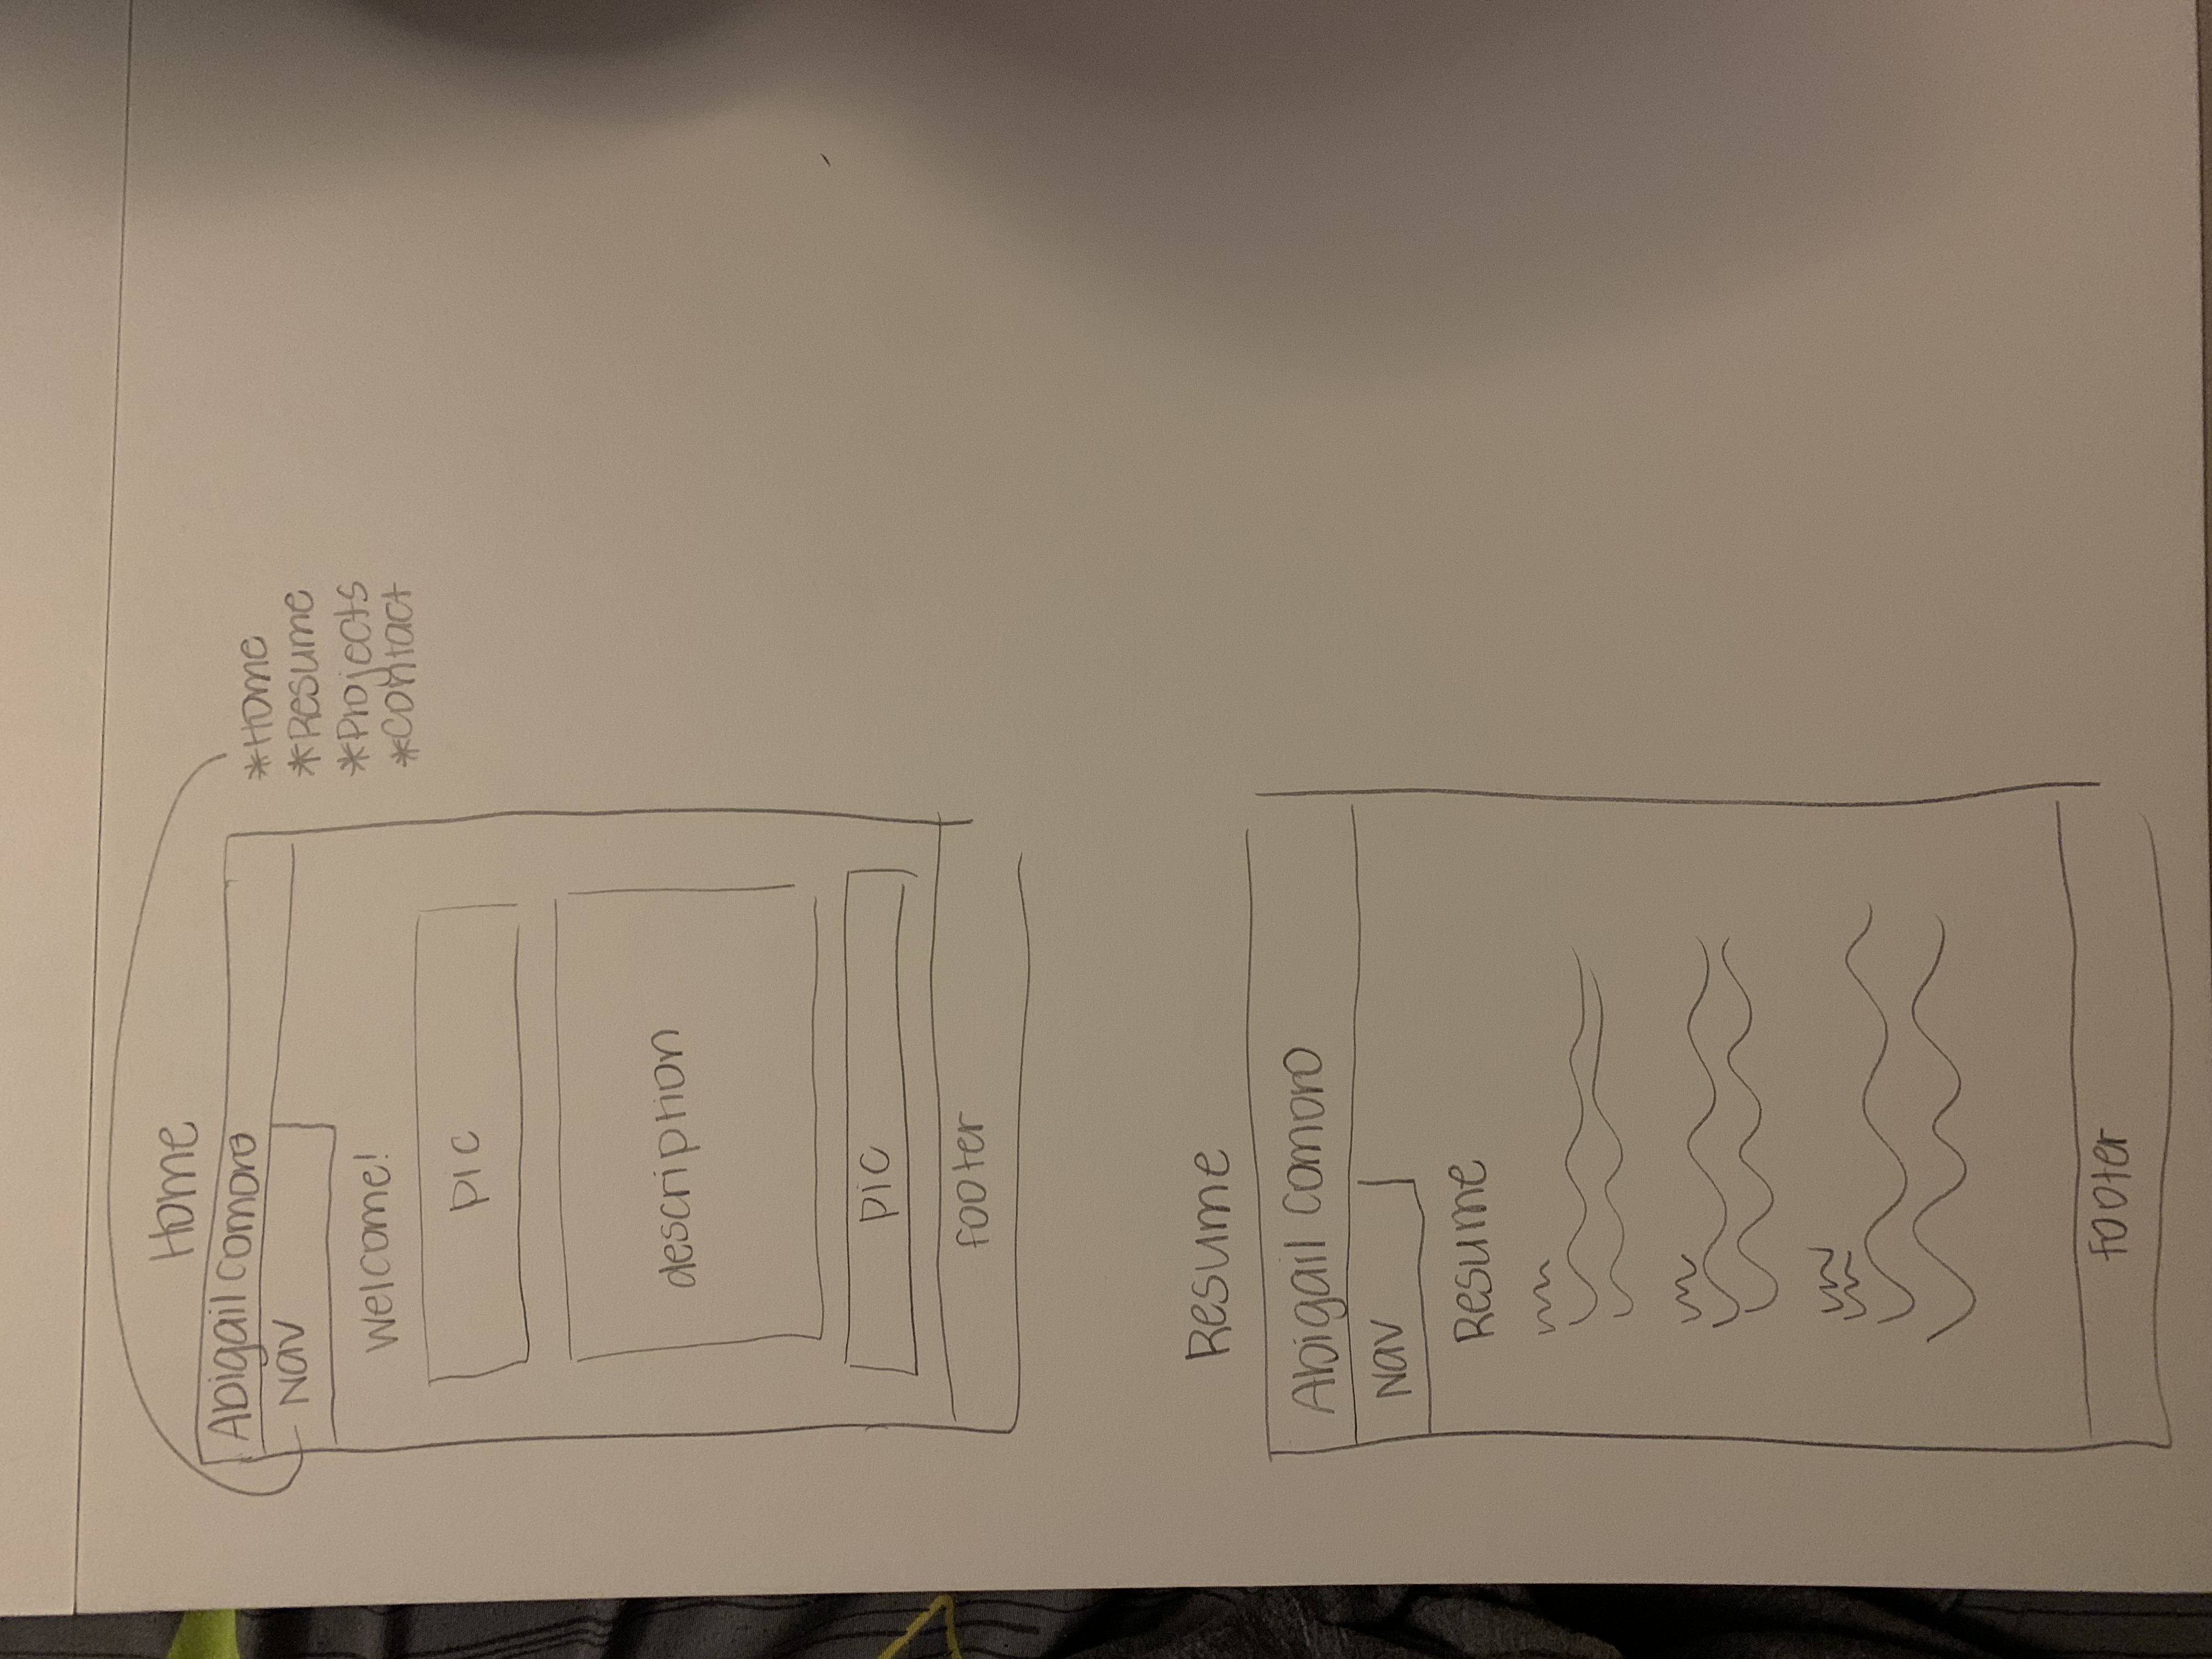 Home
Abigail Comoro
Nav
*Home
*Resume
*Projects
*Contact
Welcome!
pic
description
pic
footer
Resume
Abigail Comoro
Nav
Resume
footer